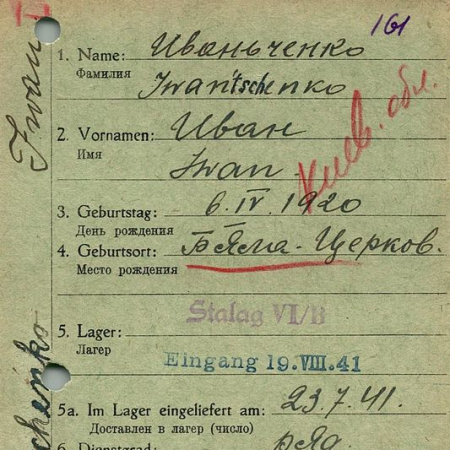 161
1. Name: Иваньченко
Фамилия
Iwan'tschenko
2. Vornamen: Иван
Имя
Iwan
Киев. обл.
3. Geburtstag: 6. IV. 1920
День рождения
4. Geburtsort: Бяла-Церков.
Место рождения
Stalag VI/B
5. Lager:
Лагер
Eingang 19. VIII. 41
5a. Im Lager eingeliefert am: 23.7.41.
Доставлен в лагер (число)
6. Dienstgrad: ряд.
Iwan